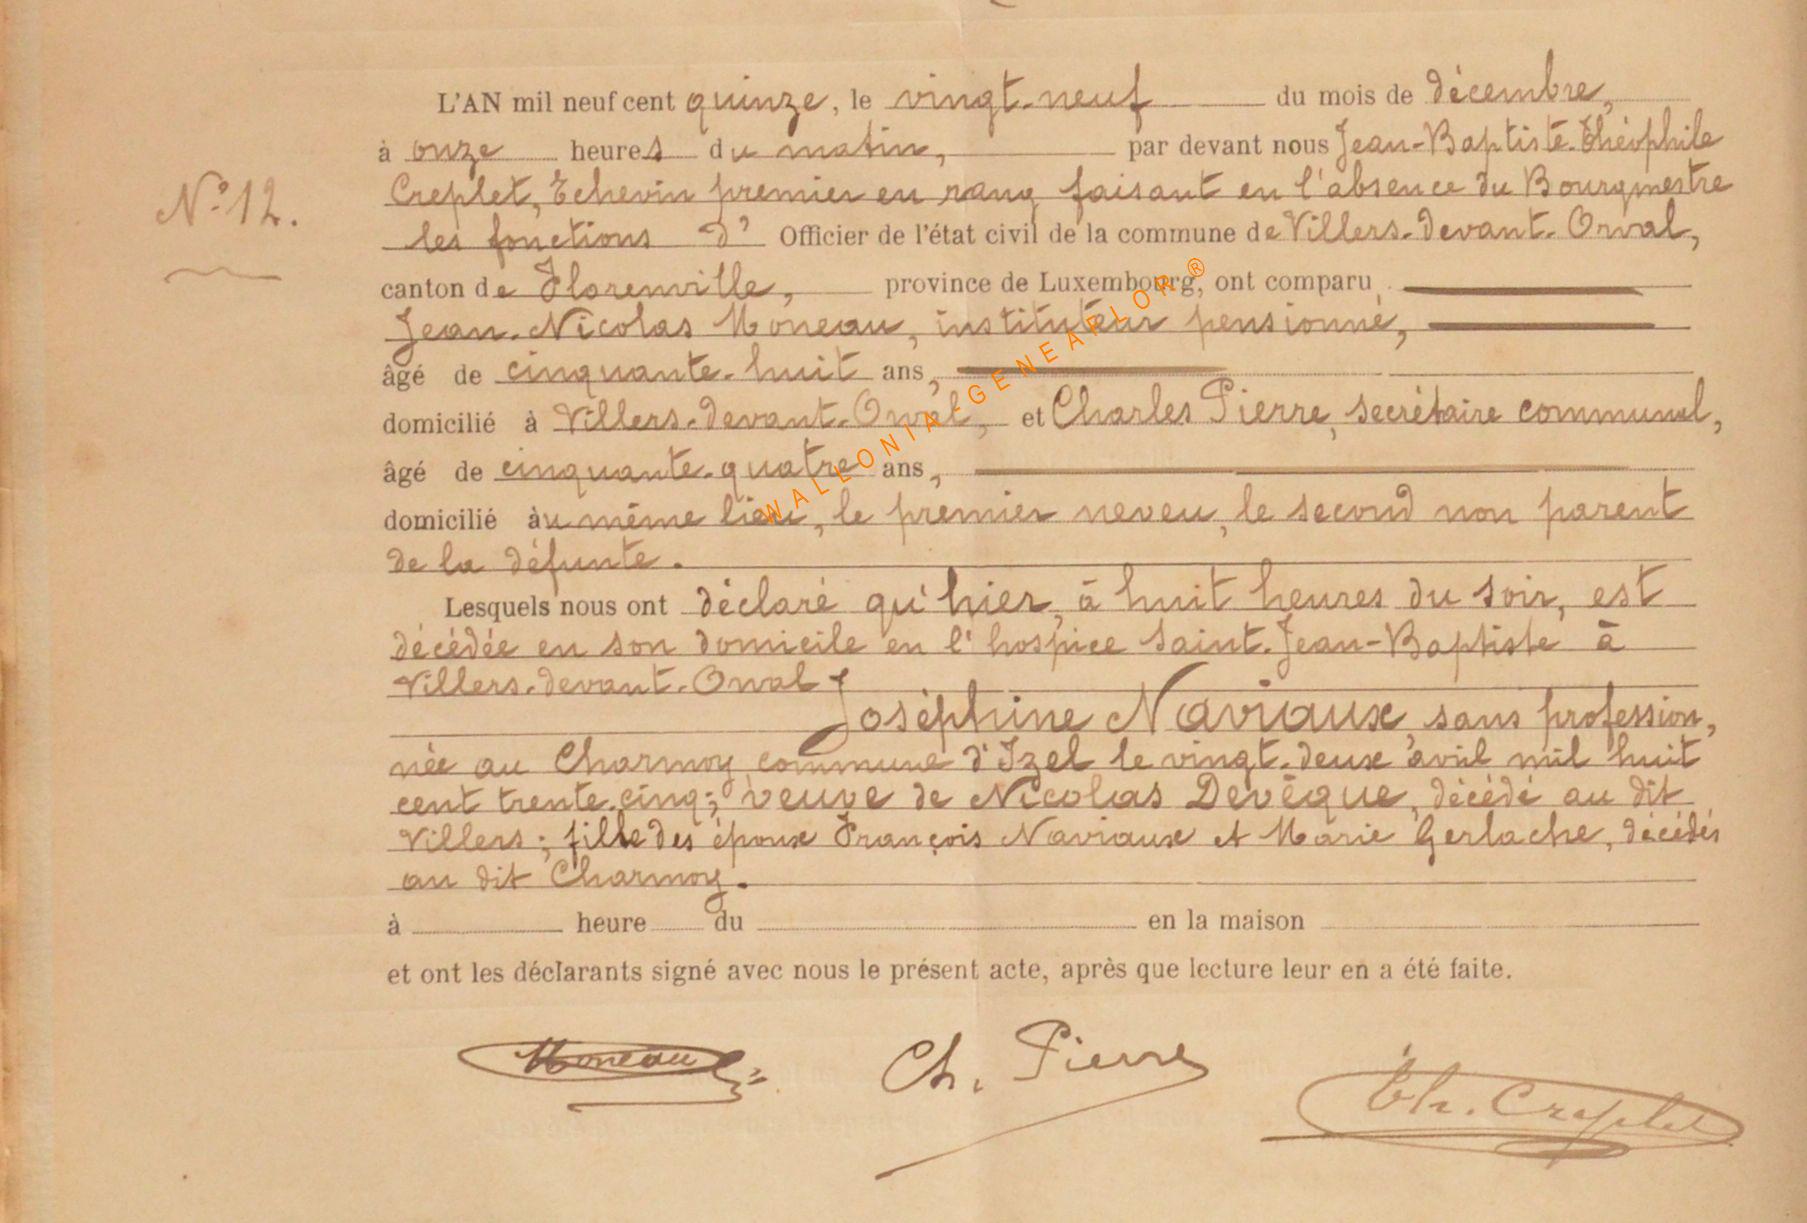 L'AN mil neuf cent quinze, le vingt-neuf du mois de décembre,
à onze heures du matin, par devant nous Jean-Baptiste-Théophile
Creplet, Echevin premier en rang faisant en l'absence du Bourgmestre
N° 12.
les fonctions d' Officier de l'état civil de la commune de Villers-devant-Orval,
canton de Florenville, province de Luxembourg, ont comparu
Jean-Nicolas Moneau, instituteur pensionné,
âgé de cinquante-huit ans,
domicilié à Villers-devant-Orval, et Charles Pierre, secrétaire communal,
âgé de cinquante-quatre ans,
domicilié au même lieu, le premier neveu, le second non parent
de la défunte.
Lesquels nous ont déclaré qu'hier, à huit heures du soir, est
décédée en son domicile en l'hospice Saint-Jean-Baptiste à
Villers-devant-Orval
Joséphine Naviaux, sans profession,
née au Charmoy commune d'Izel le vingt-deux avril mil huit
cent trente-cinq; veuve de Nicolas Devêque, décédé au dit
Villers; fille des époux François Naviaux et Marie Gerlache, décédés
au dit Charmoy.
à heure du en la maison
et ont les déclarants signé avec nous le présent acte, après que lecture leur en a été faite.
Moneau Ch. Pierre Th. Creplet
WALLONIA-GENEARLOR ®